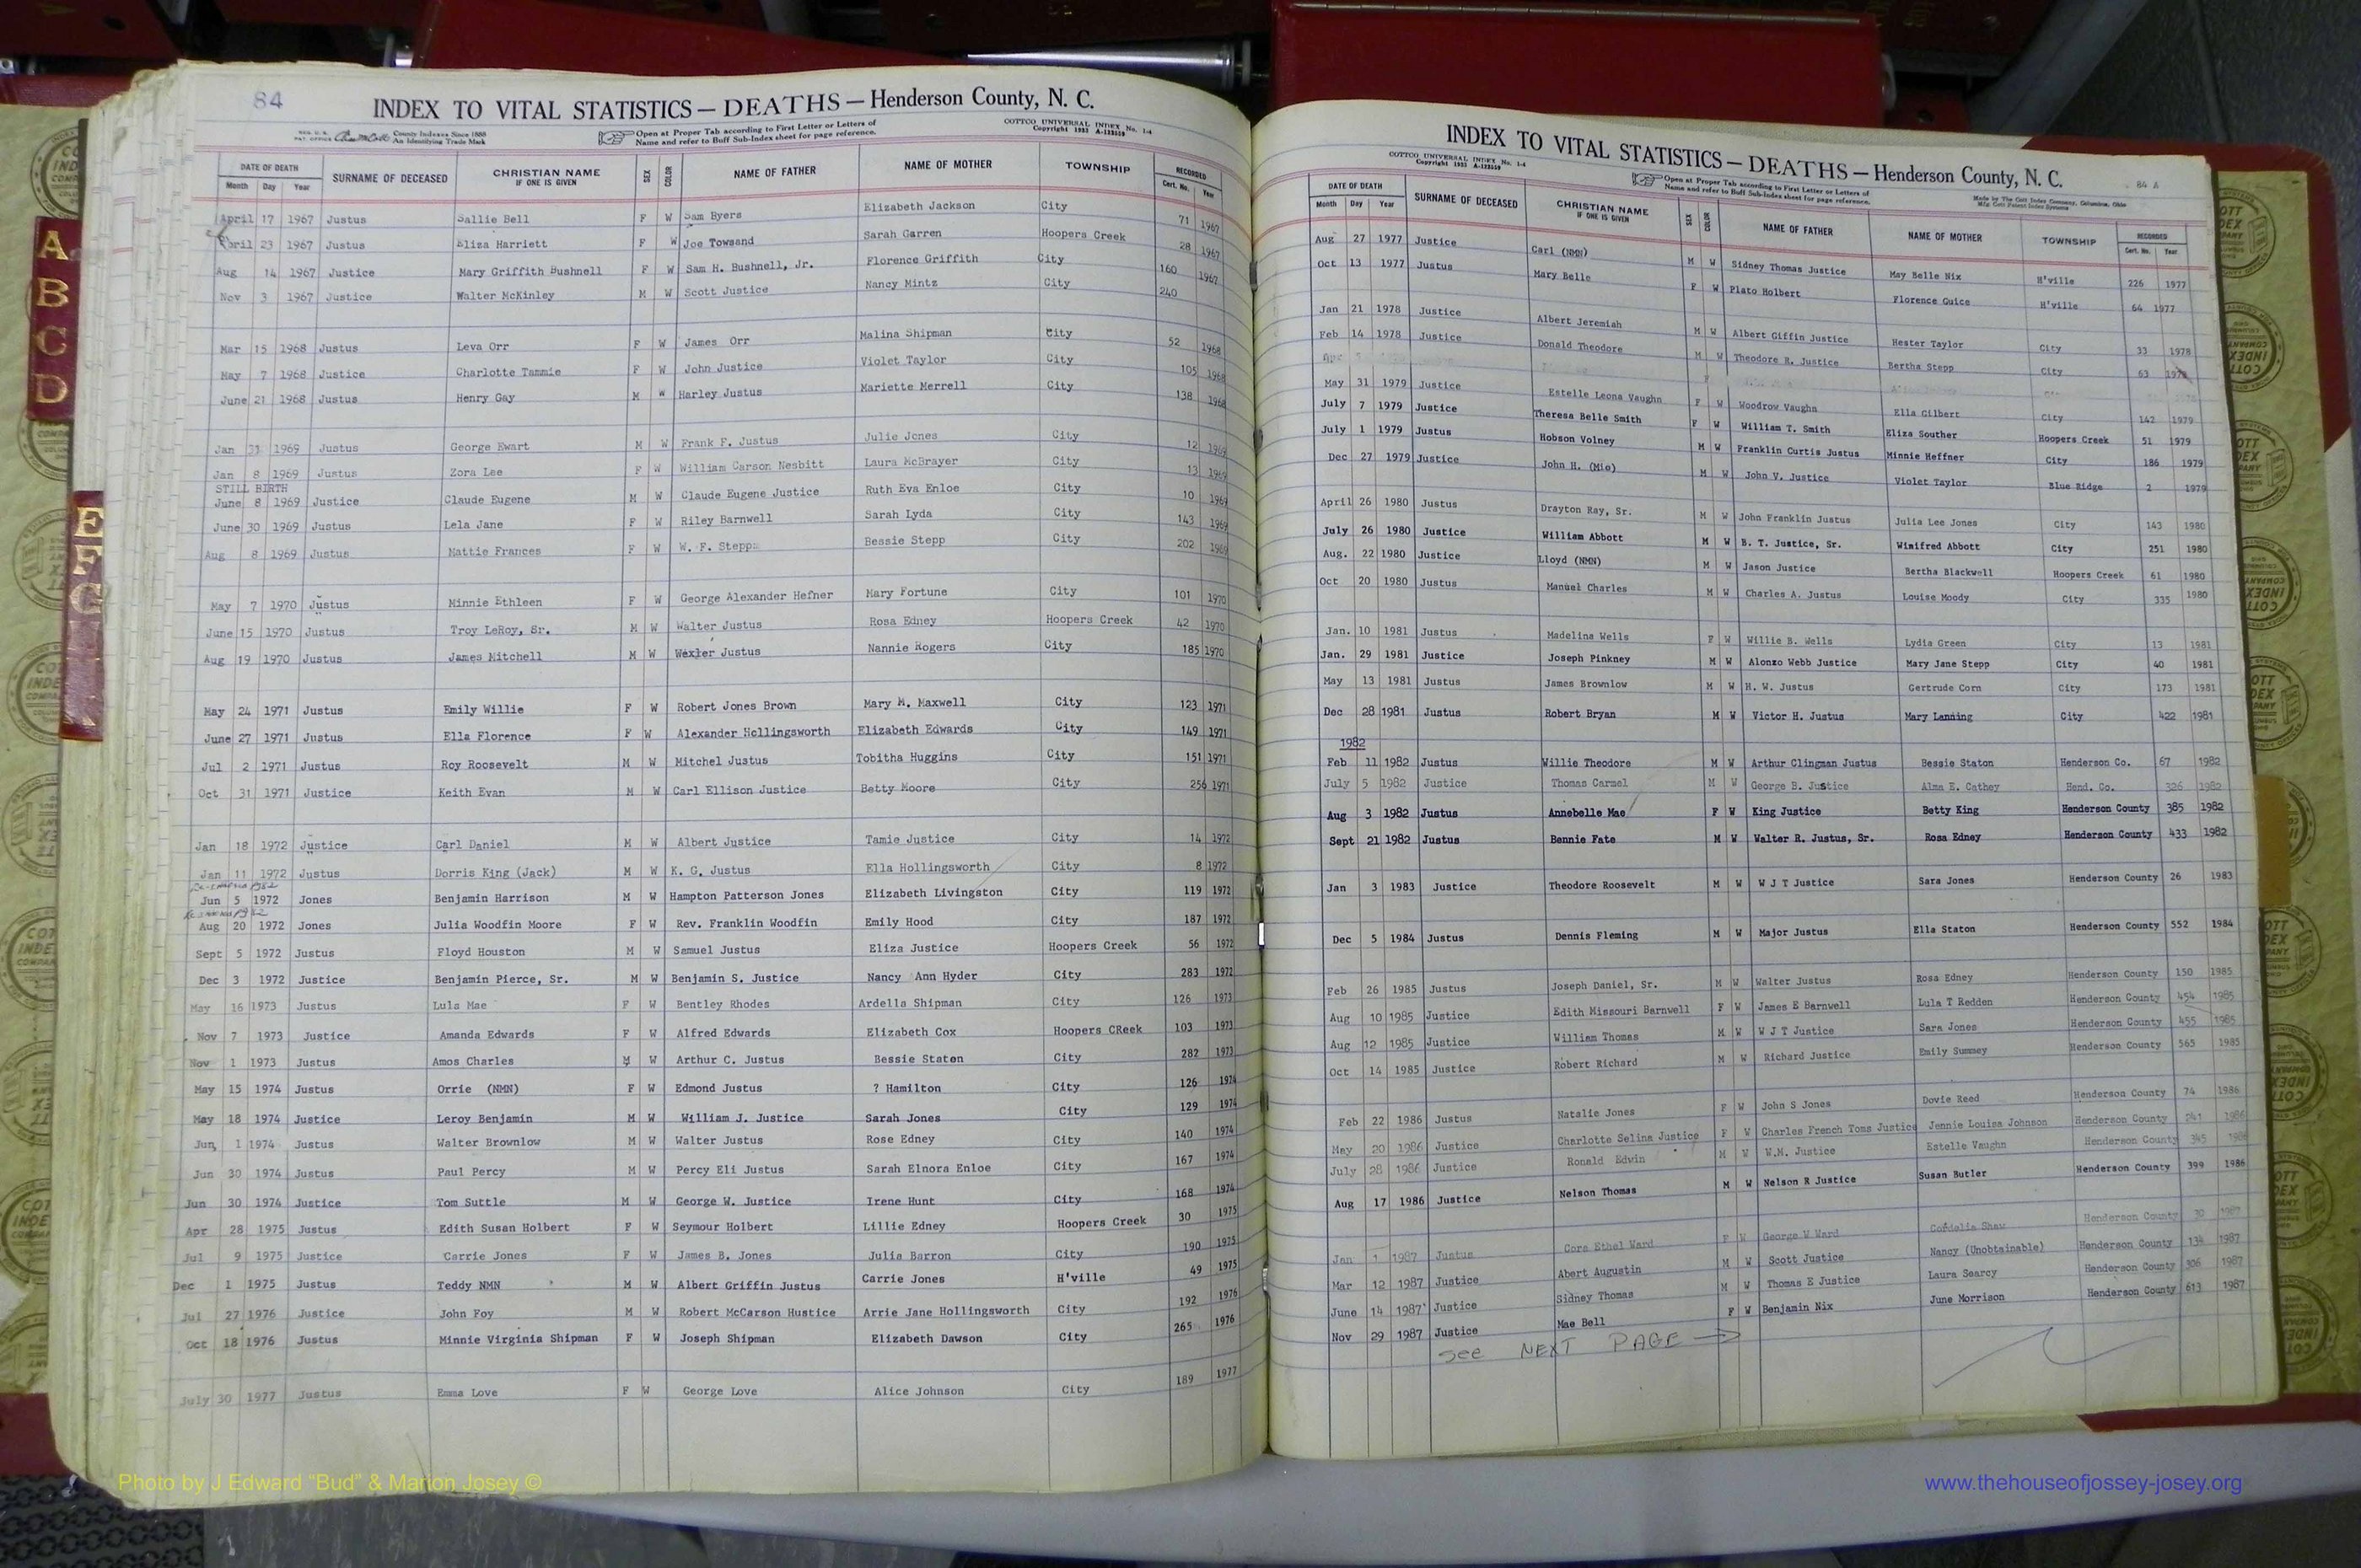 84
INDEX TO VITAL STATISTICS — DEATHS — Henderson County, N. C.
County Indexes Since 1888
An Identifying Trade Mark
Open at Proper Tab according to First Letter or Letters of
Name and refer to Buff Sub-Index sheet for page reference.
COTTCO UNIVERSAL INDEX No. 1-4
Copyright 1933 A-123559
DATE OF DEATH SURNAME OF DECEASED CHRISTIAN NAME IF ONE IS GIVEN SEX COLOR NAME OF FATHER NAME OF MOTHER TOWNSHIP RECORDED
Month Day Year Cert. No. Year
April 17 1967 Justus Sallie Bell F W Sam Byers Elizabeth Jackson City 71 1967
April 23 1967 Justus Eliza Harriett F W Joe Towsand Sarah Garren Hoopers Creek 28 1967
Aug 14 1967 Justice Mary Griffith Bushnell F W Sam H. Bushnell, Jr. Florence Griffith City 160 1967
Nov 3 1967 Justice Walter McKinley M W Scott Justice Nancy Mintz City 240
Mar 15 1968 Justus Leva Orr F W James Orr Malina Shipman City 52 1968
May 7 1968 Justice Charlotte Tammie F W John Justice Violet Taylor City 105 1968
June 21 1968 Justus Henry Gay M W Harley Justus Mariette Merrell City 138 1968
Jan 31 1969 Justus George Ewart M W Frank F. Justus Julie Jones City 12 1969
Jan 8 1969 Justus Zora Lee F W William Carson Nesbitt Laura McBrayer City 13 1969
STILL BIRTH
June 8 1969 Justice Claude Eugene M W Claude Eugene Justice Ruth Eva Enloe City 10 1969
June 30 1969 Justus Lela Jane F W Riley Barnwell Sarah Lyda City 143 1969
Aug 8 1969 Justus Mattie Frances F W W. F. Stepp Bessie Stepp City 202 1969
May 7 1970 Justus Minnie Ethleen F W George Alexander Hefner Mary Fortune City 101 1970
June 15 1970 Justus Troy LeRoy, Sr. M W Walter Justus Rosa Edney Hoopers Creek 42 1970
Aug 19 1970 Justus James Mitchell M W Wexler Justus Nannie Rogers City 185 1970
May 24 1971 Justus Emily Willie F W Robert Jones Brown Mary M. Maxwell City 123 1971
June 27 1971 Justus Ella Florence F W Alexander Hollingsworth Elizabeth Edwards City 149 1971
Jul 2 1971 Justus Roy Roosevelt M W Mitchel Justus Tobitha Huggins City 151 1971
Oct 31 1971 Justice Keith Evan M W Carl Ellison Justice Betty Moore City 256 1971
Jan 18 1972 Justice Carl Daniel M W Albert Justice Tamie Justice City 14 1972
Jan 11 1972 Justus Dorris King (Jack) M W K. G. Justus Ella Hollingsworth City 8 1972
Jun 5 1972 Jones Benjamin Harrison M W Hampton Patterson Jones Elizabeth Livingston City 119 1972
Aug 20 1972 Jones Julia Woodfin Moore F W Rev. Franklin Woodfin Emily Hood City 187 1972
Sept 5 1972 Justus Floyd Houston M W Samuel Justus Eliza Justice Hoopers Creek 56 1972
Dec 3 1972 Justice Benjamin Pierce, Sr. M W Benjamin S. Justice Nancy Ann Hyder City 283 1972
May 16 1973 Justus Lula Mae F W Bentley Rhodes Ardella Shipman City 126 1973
Nov 7 1973 Justice Amanda Edwards F W Alfred Edwards Elizabeth Cox Hoopers CReek 103 1973
Nov 1 1973 Justus Amos Charles M W Arthur C. Justus Bessie Staton City 282 1973
May 15 1974 Justus Orrie (NMN) F W Edmond Justus ? Hamilton City 126 1974
May 18 1974 Justice Leroy Benjamin M W William J. Justice Sarah Jones City 129 1974
Jun, 1 1974 Justus Walter Brownlow M W Walter Justus Rose Edney City 140 1974
Jun 30 1974 Justus Paul Percy M W Percy Eli Justus Sarah Elnora Enloe City 167 1974
Jun 30 1974 Justice Tom Suttle M W George W. Justice Irene Hunt City 168 1974
Apr 28 1975 Justus Edith Susan Holbert F W Seymour Holbert Lillie Edney Hoopers Creek 30 1975
Jul 9 1975 Justice Carrie Jones F W James B. Jones Julia Barron City 190 1975
Dec 1 1975 Justus Teddy NMN M W Albert Griffin Justus Carrie Jones H'ville 49 1975
Jul 27 1976 Justice John Foy M W Robert McCarson Hustice Arrie Jane Hollingsworth City 192 1976
Oct 18 1976 Justus Minnie Virginia Shipman F W Joseph Shipman Elizabeth Dawson City 265 1976
July 30 1977 Justus Emma Love F W George Love Alice Johnson City 189 1977
INDEX TO VITAL STATISTICS — DEATHS — Henderson County, N. C.
84 A
COTTCO UNIVERSAL INDEX No. 1-4
Copyright 1933 A-123559
Open at Proper Tab according to First Letter or Letters of
Name and refer to Buff Sub-Index sheet for page reference.
Made by The Cott Index Company, Columbus, Ohio
DATE OF DEATH SURNAME OF DECEASED CHRISTIAN NAME IF ONE IS GIVEN SEX COLOR NAME OF FATHER NAME OF MOTHER TOWNSHIP RECORDED
Month Day Year Cert. No. Year
Aug 27 1977 Justice Carl (NMN) M W Sidney Thomas Justice May Belle Nix H'ville 226 1977
Oct 13 1977 Justus Mary Belle F W Plato Holbert Florence Guice H'ville 64 1977
Jan 21 1978 Justice Albert Jeremiah M W Albert Giffin Justice Hester Taylor City 33 1978
Feb 14 1978 Justice Donald Theodore M W Theodore R. Justice Bertha Stepp City 63 1978
May 31 1979 Justice Estelle Leona Vaughn F W Woodrow Vaughn Ella Gilbert City 142 1979
July 7 1979 Justice Theresa Belle Smith F W William T. Smith Eliza Souther Hoopers Creek 51 1979
July 1 1979 Justus Hobson Volney M W Franklin Curtis Justus Minnie Heffner City 186 1979
Dec 27 1979 Justice John H. (Mio) M W John V. Justice Violet Taylor Blue Ridge 2 1979
April 26 1980 Justus Drayton Ray, Sr. M W John Franklin Justus Julia Lee Jones City 143 1980
July 26 1980 Justice William Abbott M W B. T. Justice, Sr. Winifred Abbott City 251 1980
Aug. 22 1980 Justice Lloyd (NMN) M W Jason Justice Bertha Blackwell Hoopers Creek 61 1980
Oct 20 1980 Justus Manuel Charles M W Charles A. Justus Louise Moody City 335 1980
Jan. 10 1981 Justus Madelina Wells F W Willie B. Wells Lydia Green City 13 1981
Jan. 29 1981 Justice Joseph Pinkney M W Alonzo Webb Justice Mary Jane Stepp City 40 1981
May 13 1981 Justus James Brownlow M W H. W. Justus Gertrude Corn City 173 1981
Dec 28 1981 Justus Robert Bryan M W Victor H. Justus Mary Lanning City 422 1981
1982
Feb 11 1982 Justus Willie Theodore M W Arthur Clingman Justus Bessie Staton Henderson Co. 67 1982
July 5 1982 Justice Thomas Carmel M W George B. Justice Alma E. Cathey Hend. Co. 326 1982
Aug 3 1982 Justus Annebelle Mae F W King Justice Betty King Henderson County 385 1982
Sept 21 1982 Justus Bennie Fate M W Walter R. Justus, Sr. Rosa Edney Henderson County 433 1982
Jan 3 1983 Justice Theodore Roosevelt M W W J T Justice Sara Jones Henderson County 26 1983
Dec 5 1984 Justus Dennis Fleming M W Major Justus Ella Staton Henderson County 552 1984
Feb 26 1985 Justus Joseph Daniel, Sr. M W Walter Justus Rosa Edney Henderson County 150 1985
Aug 10 1985 Justice Edith Missouri Barnwell F W James E Barnwell Lula T Redden Henderson County 454 1985
Aug 12 1985 Justice William Thomas M W W J T Justice Sara Jones Henderson County 455 1985
Oct 14 1985 Justice Robert Richard M W Richard Justice Emily Summey Henderson County 565 1985
Feb 22 1986 Justus Natalie Jones F W John S Jones Dovie Reed Henderson County 74 1986
May 20 1986 Justice Charlotte Selina Justice F W Charles French Toms Justice Jennie Louisa Johnson Henderson County 241 1986
July 28 1986 Justice Ronald Edwin M W W.M. Justice Estelle Vaughn Henderson County 345 1986
Aug 17 1986 Justice Nelson Thomas M W Nelson R Justice Susan Butler Henderson County 399 1986
Jan 1 1987 Justus Cora Ethel Ward F W George W Ward Cordelia Shaw Henderson County 30 1987
Mar 12 1987 Justice Abert Augustin M W Scott Justice Nancy (Unobtainable) Henderson County 134 1987
June 14 1987 Justice Sidney Thomas M W Thomas E Justice Laura Searcy Henderson County 306 1987
Nov 29 1987 Justice Mae Bell F W Benjamin Nix June Morrison Henderson County 613 1987
see NEXT PAGE →
A
B
C
D
E
F
G
Photo by J Edward "Bud" & Marion Josey ©
www.thehouseofjossey-josey.org